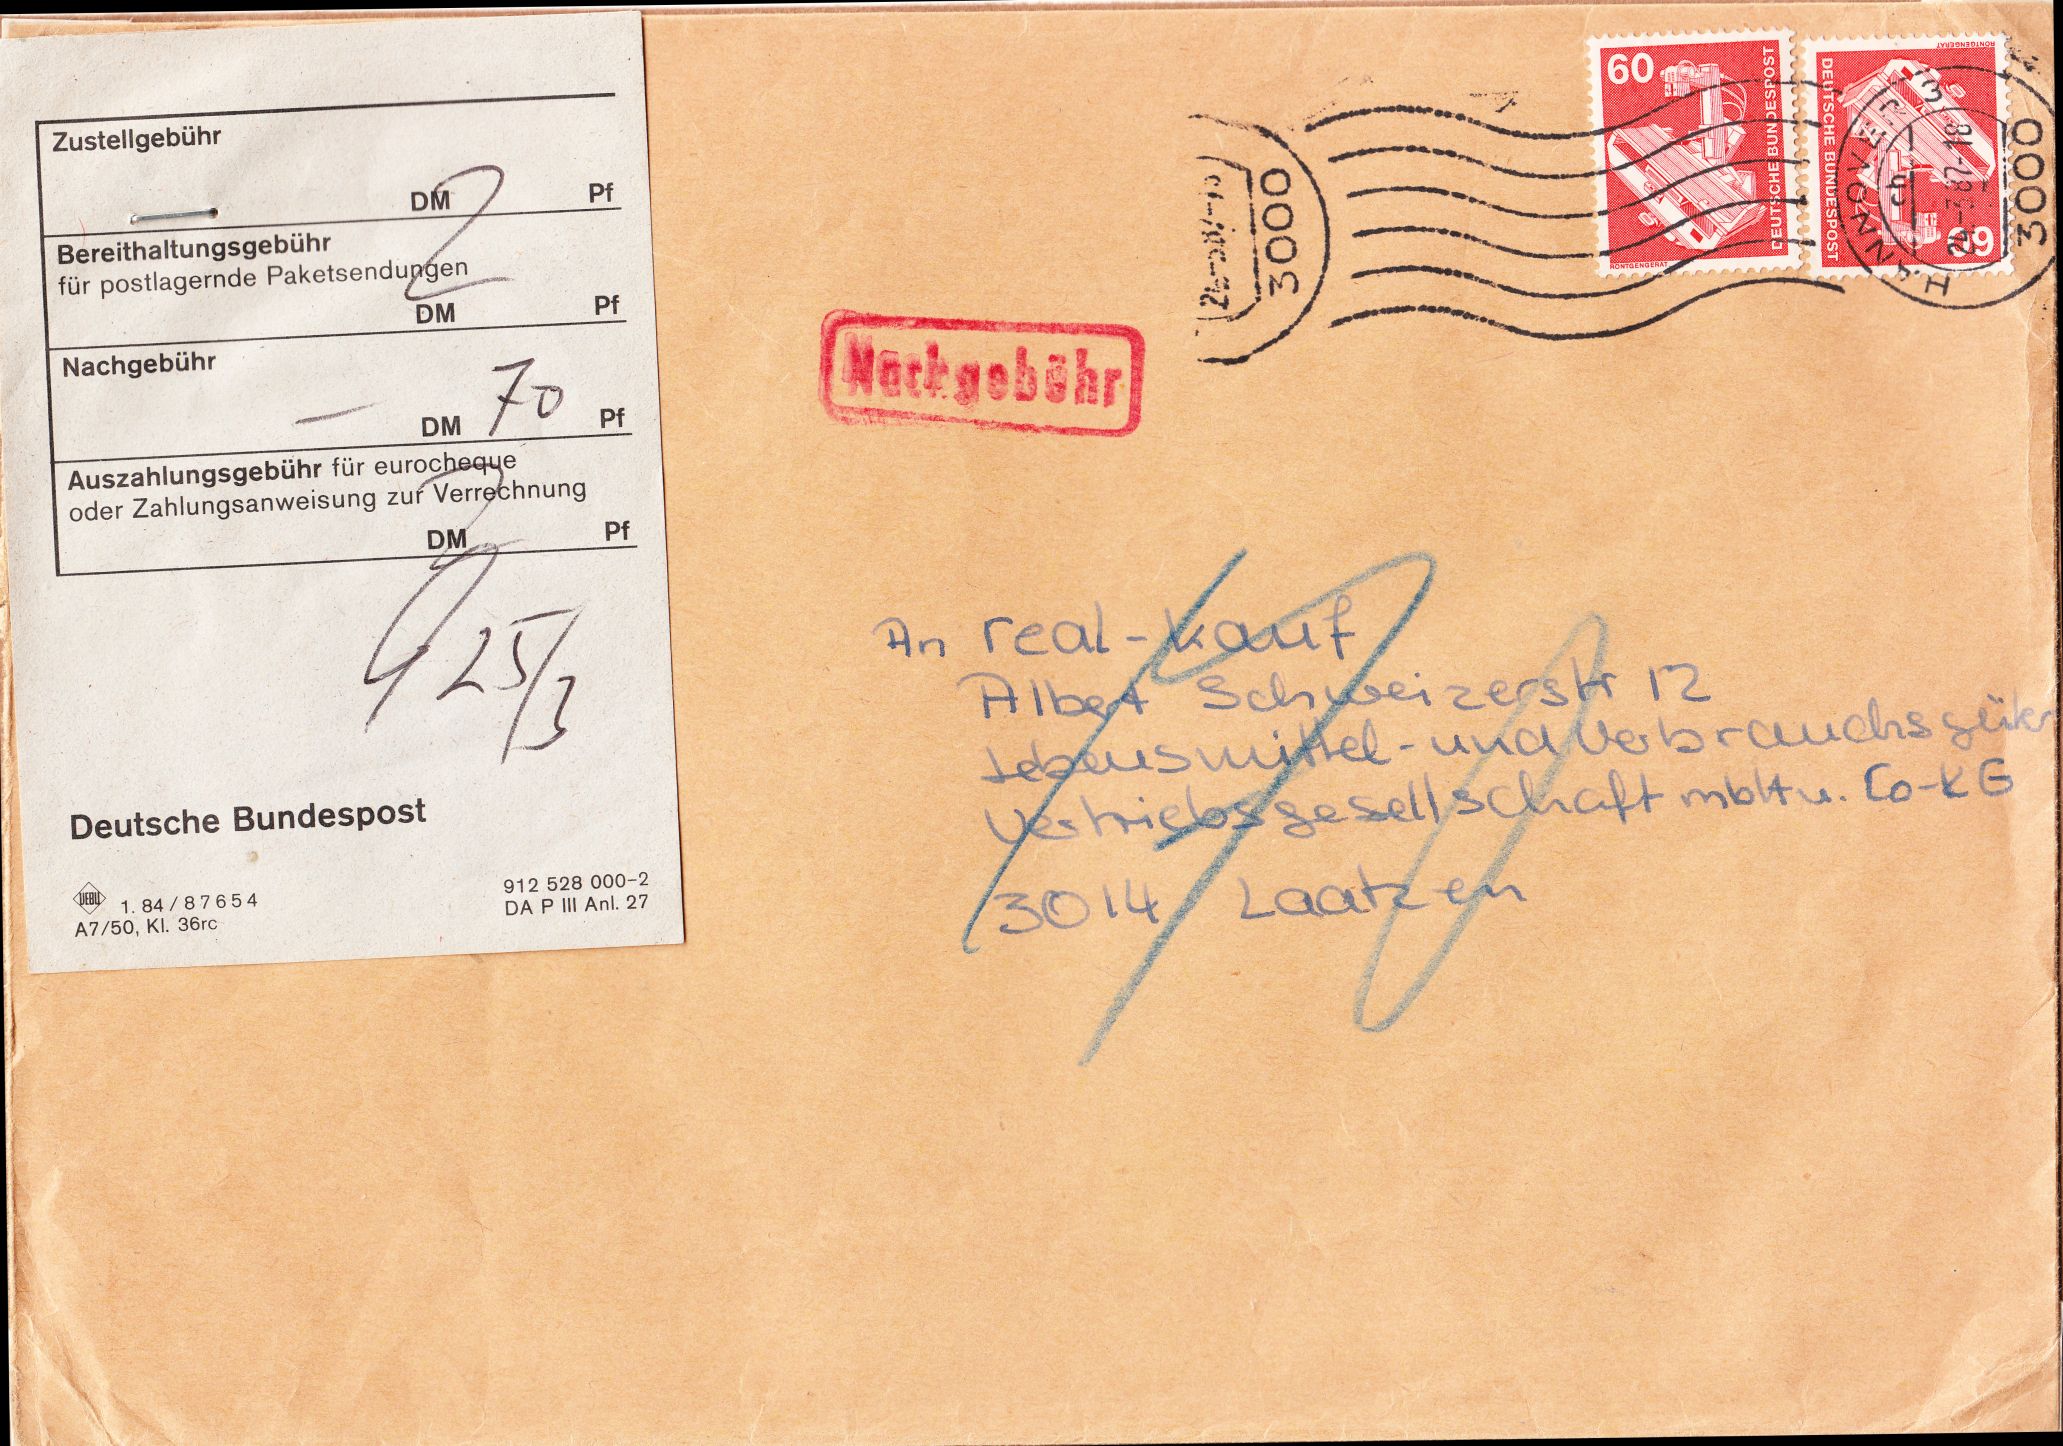 Zustellgebühr
DM Pf
Bereithaltungsgebühr
für postlagernde Paketsendungen
DM Pf
Nachgebühr
— DM 70 Pf
Auszahlungsgebühr für eurocheque
oder Zahlungsanweisung zur Verrechnung
DM Pf
25/3
Deutsche Bundespost
UEBU 1. 84 / 87654
A7/50, Kl. 36rc
912 528 000-2
DA P III Anl. 27
Nachgebühr
3000
60
DEUTSCHE BUNDESPOST
RÖNTGENGERÄT
60
DEUTSCHE BUNDESPOST
RÖNTGENGERÄT
HANNOVER
ch
24-3.87-18
3000
An real-kauf
Albert Schweizerstr 12
Lebensmittel-und Verbrauchsgüter
Vertriebsgesellschaft mbH u. Co-KG
3014 Laatzen
70